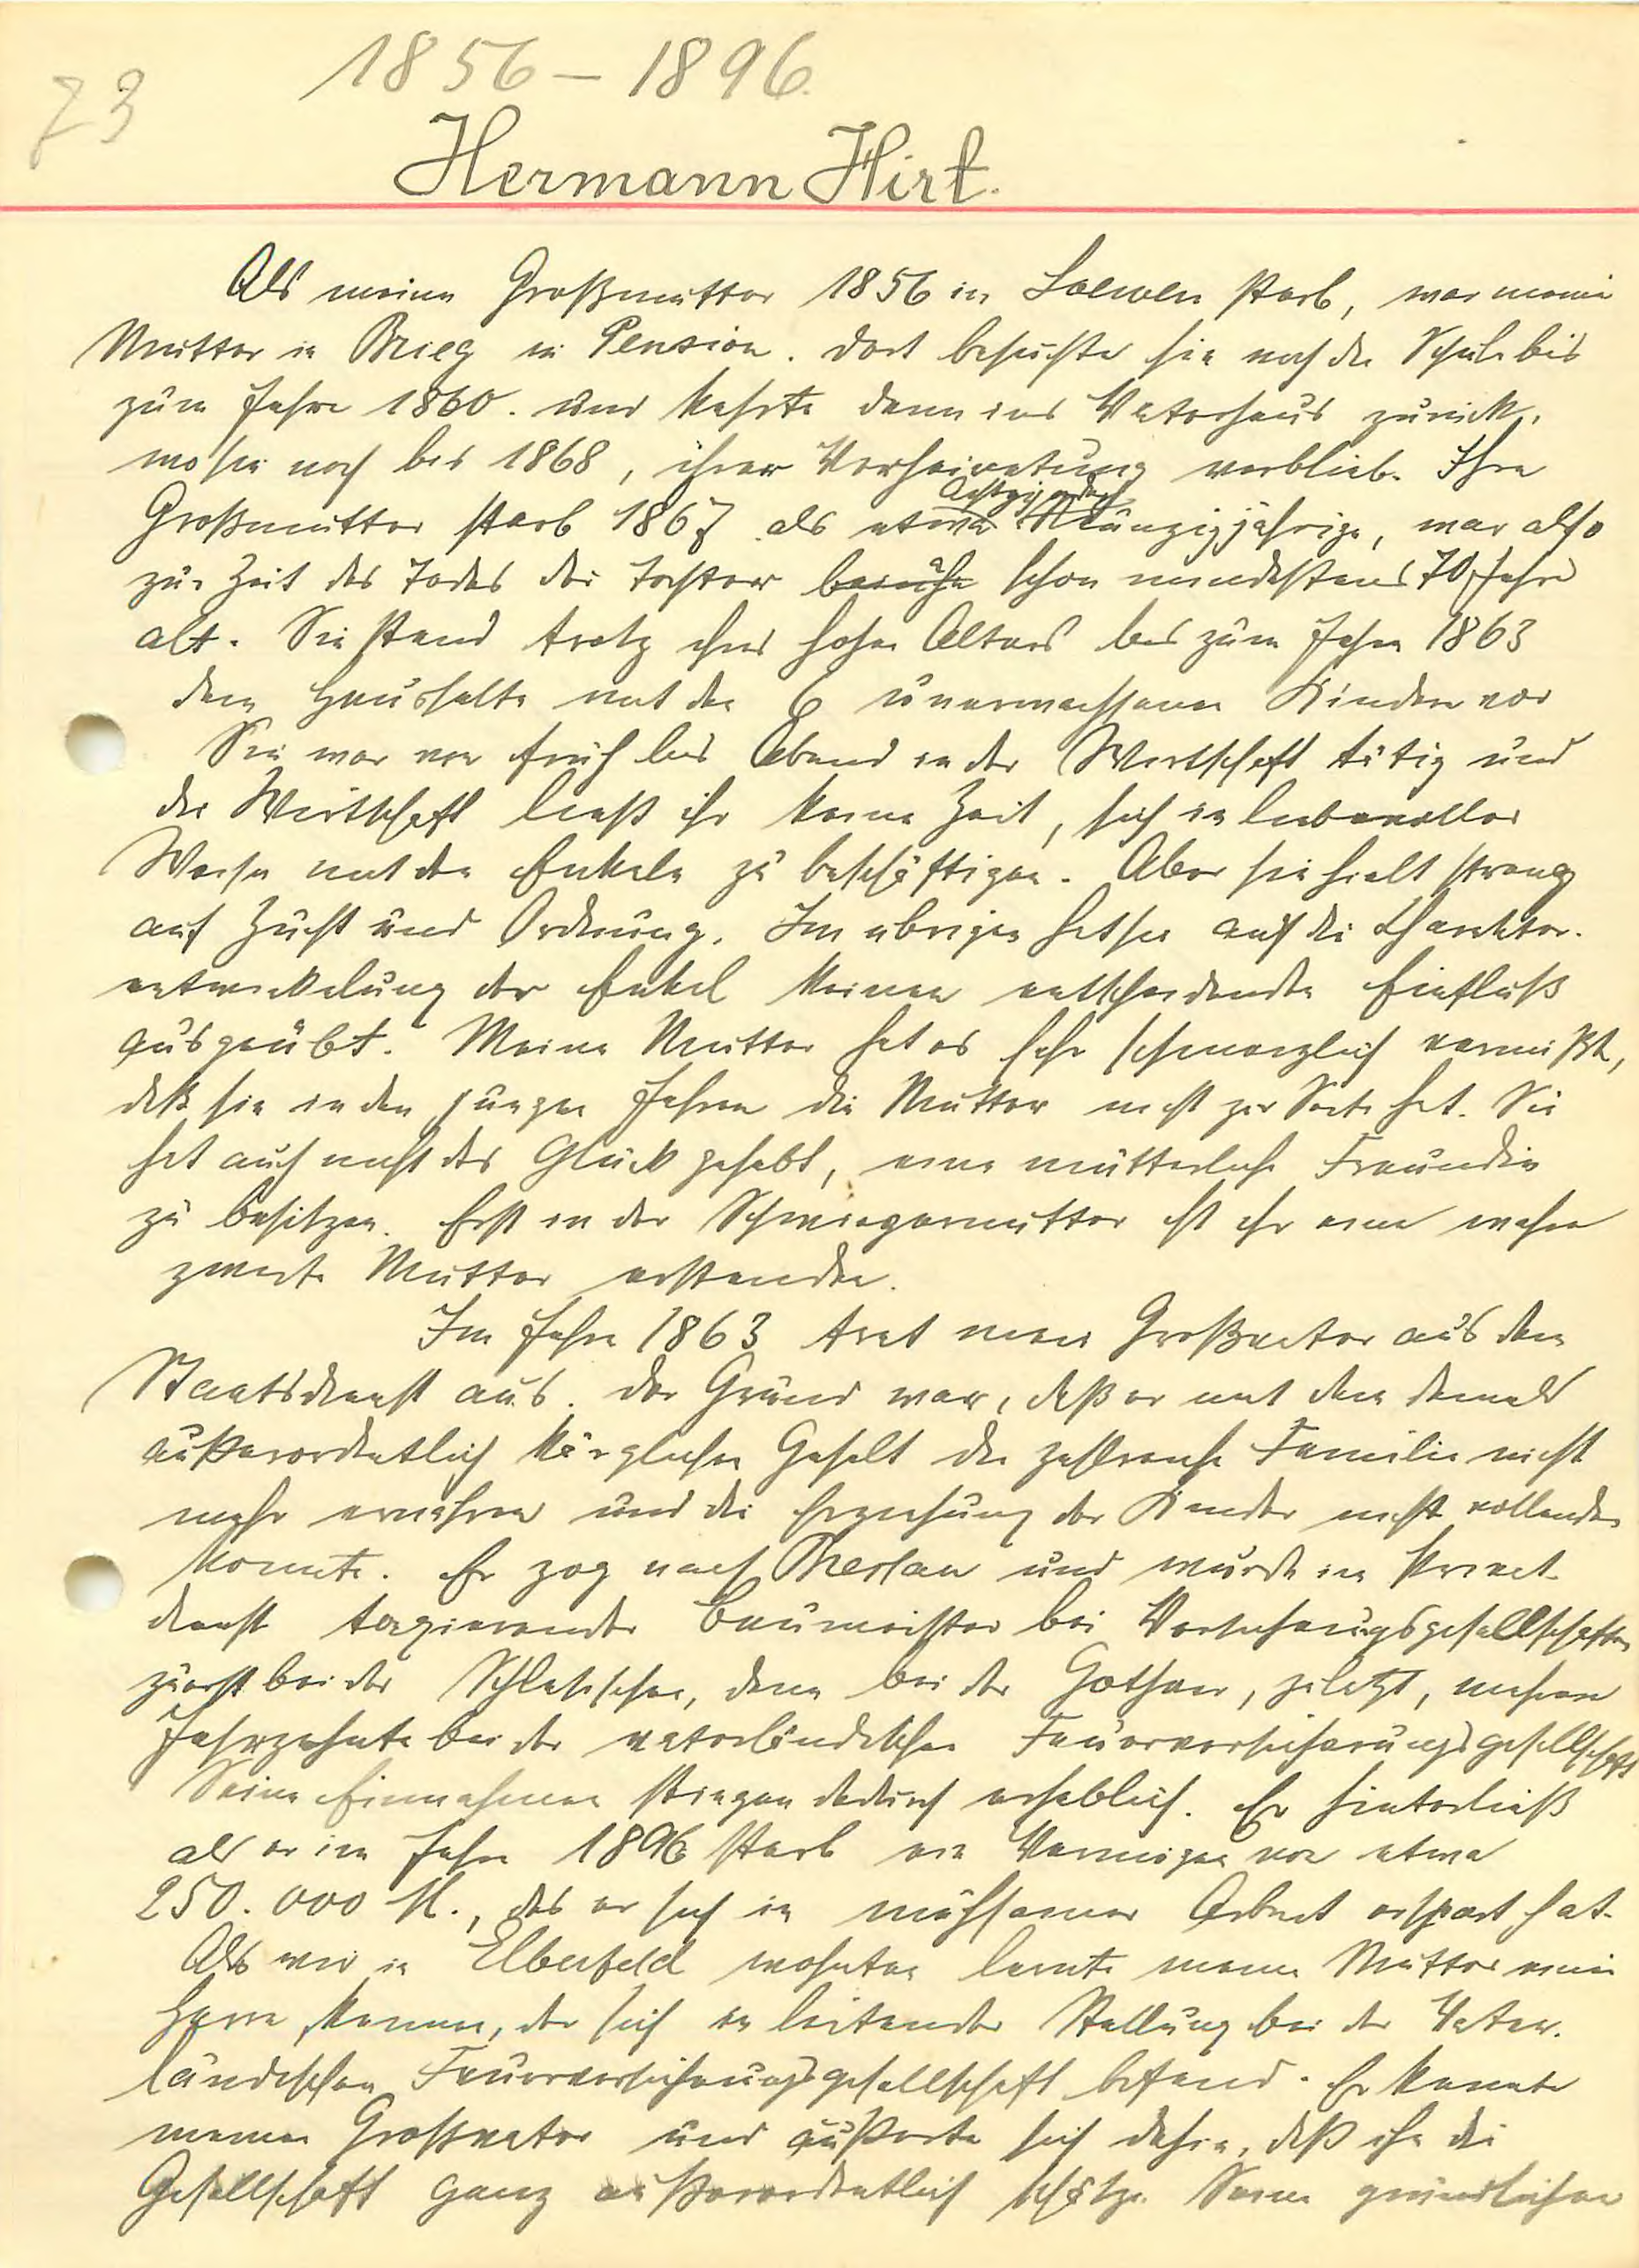 1856 – 1896.
73
Hermann Hirt.
Als meine Großmutter 1856 in Loewen starb, war meine
Mutter in Brieg in Pension. Dort besuchte sie noch die Schule bis
zum Jahre 1860. und kehrte dann ins Vaterhaus zurück,
wo sie noch bis 1868, ihrer Verheiratung verblieb. Ihre
Großmutter starb 1867 als etwa Neunzigjährige, war also
zur Zeit des Todes der Tochter beinahe schon mindestens 70 Jahre
alt. Sie stand trotz ihres hohen Alters bis zum Jahre 1863
dem Haushalte mit den 6 unerwachsenen Kindern vor
Sie war von früh bis Abend in der Wirtschaft tätig und
die Wirtschaft ließ ihr keine Zeit, sich in liebevoller
Weise mit den Enkeln zu beschäftigen. Aber sie hielt streng
auf Zucht und Ordnung. Im übrigen hat sie auf die Charakter-
entwickelung der Enkel keinen entscheidenden Einfluß
ausgeübt. Meine Mutter hat es sehr schmerzlich vermißt,
daß sie in den jungen Jahren die Mutter nicht zur Seite hat. Sie
hat auch nicht das Glück gehabt, eine mütterliche Freundin
zu besitzen. Erst in der Schwiegermutter ist ihr eine wahre
zweite Mutter erstanden.
Im Jahre 1863 trat mein Großvater aus dem
Staatsdienst aus. Der Grund war, daß er mit dem damals
außerordentlich kärglichen Gehalt die zahlreiche Familie nicht
mehr ernähren und die Erziehung der Kinder nicht vollenden
konnte. Er zog nach Breslau und wurde im Privat-
dienst taxierender Baumeister bei Versicherungsgesellschaften
zuerst bei der Schlesischen, dann bei der Gothaer, zuletzt, mehrere
Jahrzehnte bei der vaterländischen Feuerversicherungsgesellschaft
Seine Einnahmen stiegen dadurch erheblich. Er hinterließ
als er im Jahre 1896 starb ein Vermögen von etwa
250.000 M., das er sich in mühsamer Arbeit erspart hat.
Als wir in Elberfeld wohnten lernte meine Mutter einen
Herrn kennen, der sich in leitender Stellung bei der Vater-
ländischen Feuerversicherungsgesellschaft befand. Er kannte
meinen Großvater und äußerte sich dahin, daß ihn die
Gesellschaft ganz außerordentlich schätze. Seine gründlichen